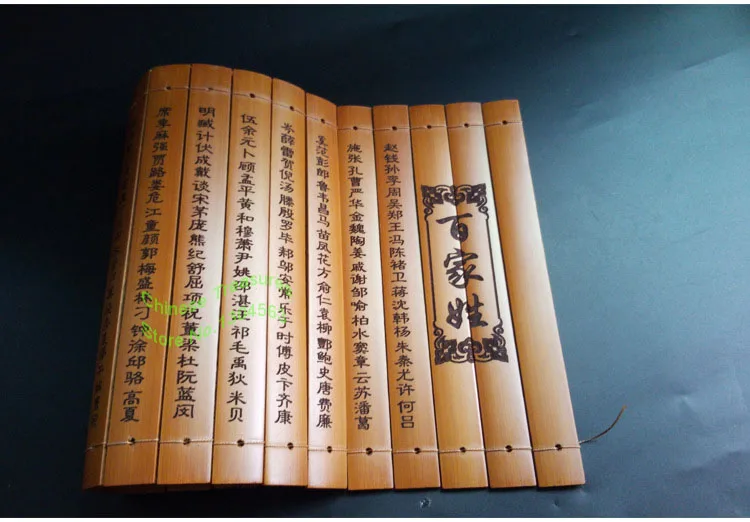 百家姓
赵钱孙李周吴郑王冯陈褚卫蒋沈韩杨朱秦尤许何吕
施张孔曹严华金魏陶姜戚谢邹喻柏水窦章云苏潘葛
奚范彭郎鲁韦昌马苗凤花方俞仁袁柳酆鲍史唐费廉
岑薛雷贺倪汤滕殷罗毕郝邬安常乐于时傅皮卞齐康
伍余元卜顾孟平黄和穆萧尹姚邵湛汪祁毛禹狄米贝
明臧计伏成戴谈宋茅庞熊纪舒屈项祝董梁杜阮蓝闵
席季麻强贾路娄危江童颜郭梅盛林刁钟徐邱骆高夏
Chinese treasures
Store No.: